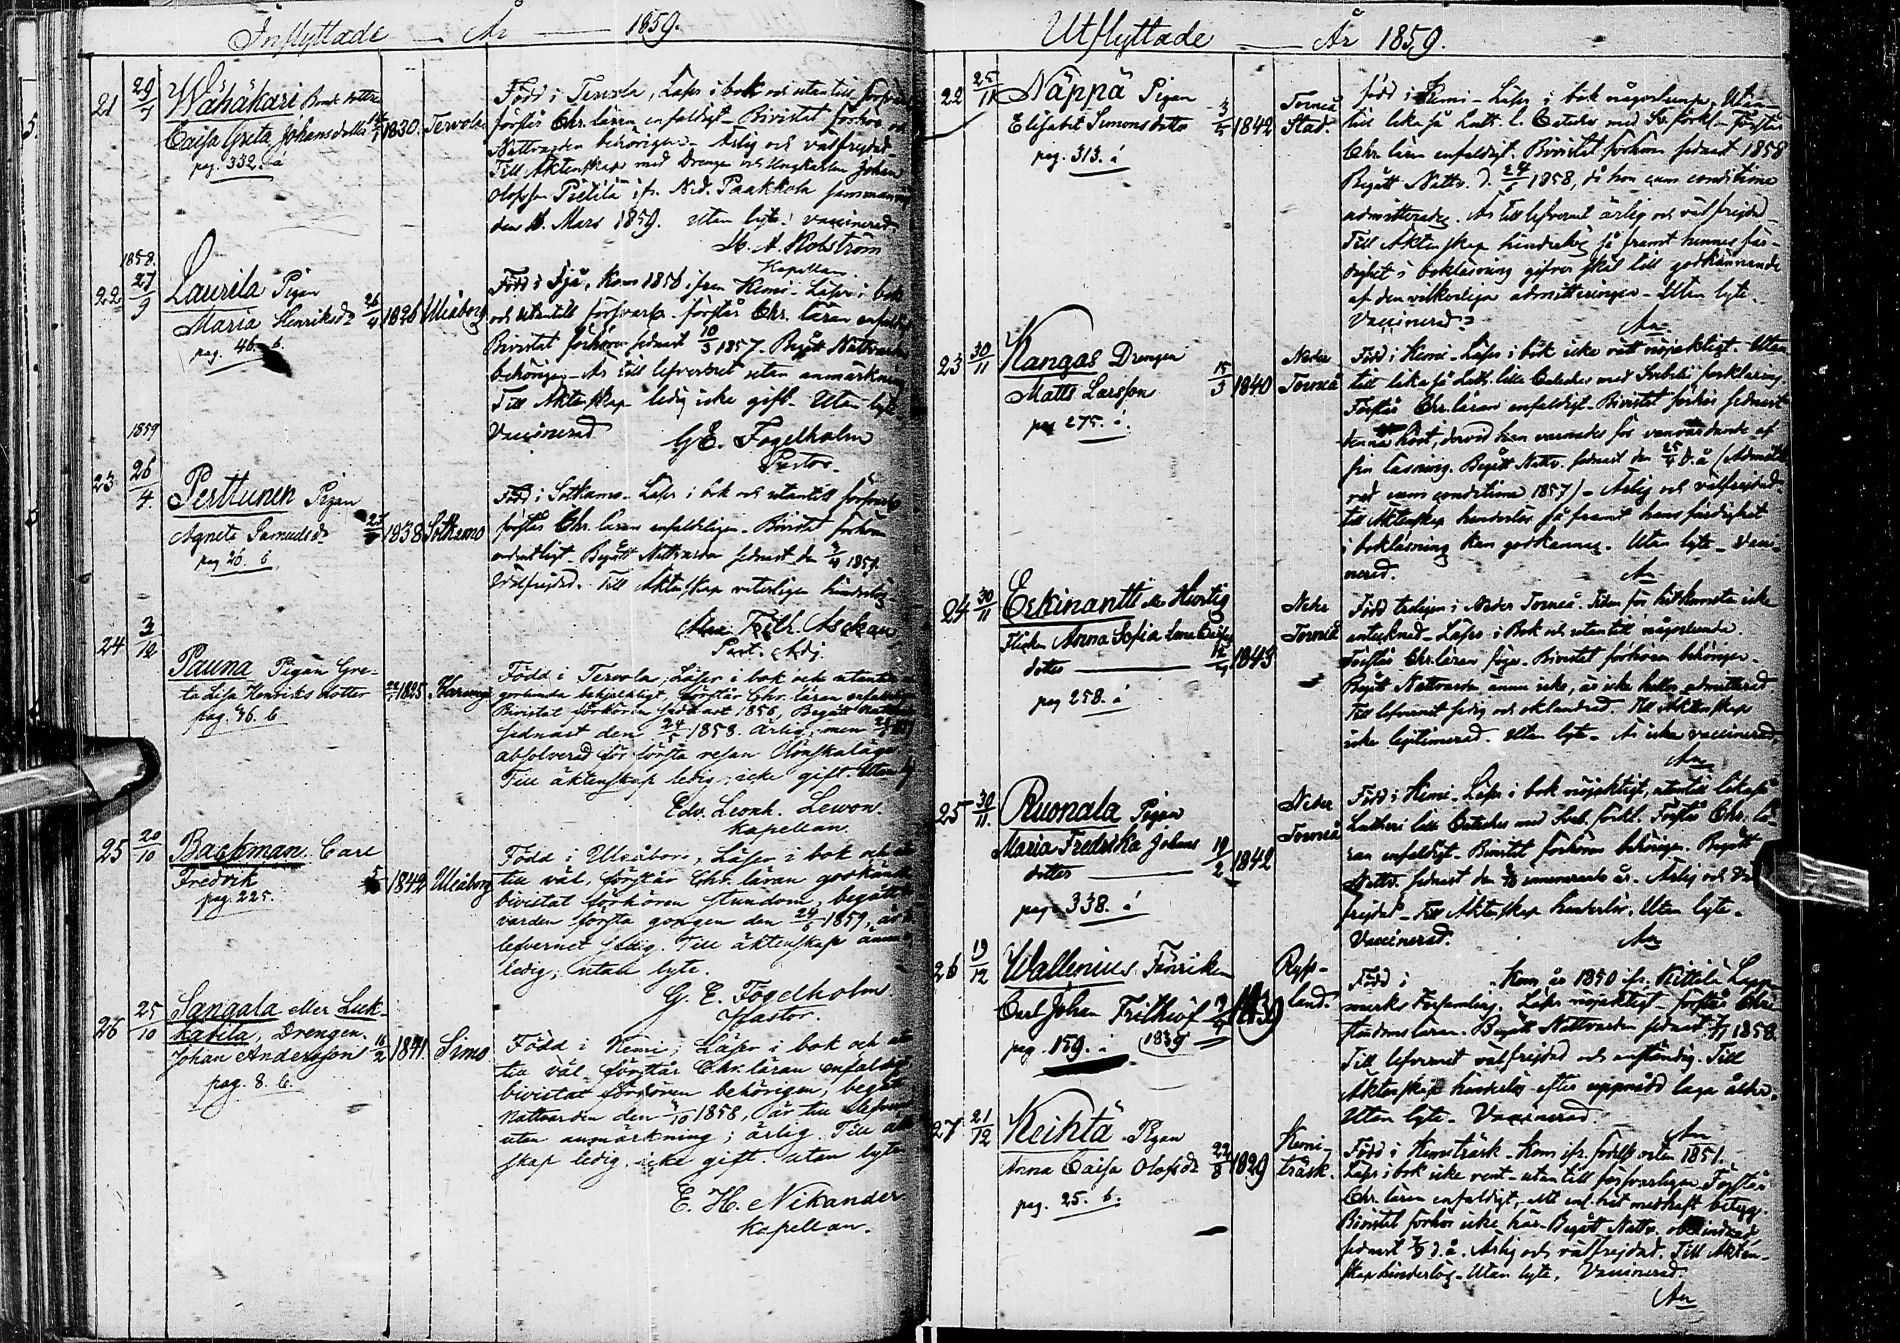 Inflyttade År 1859.
21 29/3 Wähäkari
Caisa Greta Johansdotter 1830. Tervola
pag. 332. å
Född i Tervola, Läser i bok och utantill försvarl.
förstår Chr. läran enfaldigt. Bivistat förhör och
Nattvarden behörigen. Ärlig och välfrejdad.
Till Äktenskap med Drengen och Ungkarlen Johan
Olofsson Pietilä ifr. Ned. Paakkola
den Mars 1859. Utan lyte; vaccinerad
Kapellan.
1858.
22 27/9 Laurila Pigan
Maria Henriksdr 26/4 1826 Uleåborg
pag. 46. b.
Född i Ijå, Kom 1856 ifrån Kemi. Läser i bok
och utantill försvarl. förstår Chr. läran enfaldigt
Bivistat förhören sednast 10/3 1857. Begått Nattvarden
behörigen. Är till lefvernet utan anmärkning
Till Äktenskap ledig icke gift. Utan lyte.
Vaccinerad
G E. Fogelholm
Pastor.
1859
23 26/4 Perttunen Pigan
Agneta 1838 Sotkamo
pag 26. b
Född i Sotkamo. Läser i bok och utantill försvarl.
förstår Chr. läran enfaldeligen. Bivistat förhören
ordentligt. Begått Nattvarden sednast den 1859.
Välfrejdad. Till Äktenskap veterligen hinderlös
Past. Adj.
24 3/12 Pauna Pigan Gre-
ta Lisa Henriks dotter 1825. Karunge
pag. 46. b
Född i Tervola, Läser i bok och utantill
Förstår Chr. läran enfaldeligen
Bivistat förhören sednast 1856, Begått Nattvarden
sednast den 24/5 1858. Ärlig, men
absolverad för första resan Lönskaläge
Till äktenskap ledig; icke gift. Utan
Edv. Leonh. Lewon.
Kapellan.
25 20/10 Backman. Carl
Fredrik 1842 Uleåborg
pag. 225.
Född i Uleåborg, Läser i bok och
till väl, förstår Chr. läran
bivistat förhören stundom, begått
varden första gången den 24/6 1859, är
lefvernet sedig. Till äktenskap ännu
ledig, utan lyte.
G. E. Fogelholm.
Pastor.
26 25/10 Sangala eller Luk-
karila, Drengen
Johan Andersson 16/2 1841. Simo
pag. 8. b.
Född i Kemi; Läser i bok och
till väl förstår Chr. läran enfaldigt
bivistat förhören behörigen, begått
Nattvarden den 1858, är till lefvernet
utan anmärkning; ärlig. Till äkten-
skap ledig, icke gift. utan lyte
E. H. Nikander
Kapellan.
Utflyttade År 1859.
22 25/11 Näppä Pigan
Elisabet Simonsdotter 3/5 1842 Torneå Stad.
pag. 313. å
född i Kemi. Läser i bok någorlunda, Utan-
till lika så Luth. l. Cateches med Sv. förkl. Förstår
Chr. läran enfaldigt. Bivistat förhören sednast 1858
Begått Nattv. d. 1858, då hon cum conditione
admitterades. Är till lefvernet ärlig och välfrejdad.
Till Äktenskap hinderlös så framt hennes fär-
dighet i bokläsning gifver skäl till godkännande
af den vilkorliga admitteringen. Utan lyte.
Vaccinerad.
23 30/11 Kangas Drengen
Matts Larsson 15/3 1840 Neder Torneå
pag 275. å.
Född i Kemi. Läser i bok icke rätt nöjaktigt. Utan-
till lika så Luth. lilla Cateches med Svebelii förklaring.
Förstår Chr. läran enfaldigt. Bivistat förhör sednast
denna höst, dervid han varnades för vanvårdande af
sin läsning. Begått Nattv. sednast den d. å (Admitte-
rad cum conditione 1857). Ärlig och välfrejdad.
till Äktenskap hinderlös så framt hans färdighet
i bokläsning kan godkännas. Utan lyte. Vacci-
nerad.
24 30/11 Erkinantti eller Hurtig
Flickan Anna Sofia
dotter 1843 Neder Torneå
pag 258. å
Född troligen i Neder Torneå. Tiden för hitkomsten icke
antecknad. Läser i Bok och utantill någorlunda.
Förstår Chr. läran föga. Bivistat förhören behörigen.
Begått Nattvarden ännu icke, är icke heller admitterad
Till lefvernet sedig och oklandrad. Till Äktenskap
icke legitimerad. Utan lyte. Är icke vaccinerad.
25 30/11 Ruonala Pigan
Maria Fredrika Johans
dotter 19/2 1842 Neder Torneå
pag. 338. å
Född i Kemi. Läser i bok nöjaktigt, utantill likaså
Lutheri lilla Cateches med Sveb. förkl. Förstår Chr. lä-
ran enfaldigt. Bivistat förhören behörigen. Begått
Nattv. sednast den innevarande år. Ärlig och väl-
frejdad. Till Äktenskap hinderlös. Utan lyte.
Vaccinerad.
26 19/12 Wallenius Fänriken
Carl Johan Frithiof 19/4 1839 Ryss-
land.
pag. 159. å (1839)
Född i . Kom år 1850 ifr. Kittilä Lapp-
marks Församling. Läser nöjaktigt förstår Chri-
stendomsläran. Begått Nattvarden sednast 1858.
Till lefvernet välfrejdad och anständig. Till
Äktenskap hinderlös efter uppnådd laga ålder.
Utan lyte. Vaccinerad.
27 21/12 Keihtä Pigan
Anna Caisa Olofsdr 22/8 1829 Kemi-
träsk.
pag. 25. b.
Född i Kemiträsk. Kom ifr. födelseorten 1851.
Läser i bok icke rent. utantill försvarligen. Förstår
Chr. läran enfaldigt, allt enl. hit medhaft betyg.
Bivistat förhör icke här. Begått Nattv. oklandrad
sednast d. å. Ärlig och välfrejdad. Till Äkten-
skap hinderlös. Utan lyte. Vaccinerad.